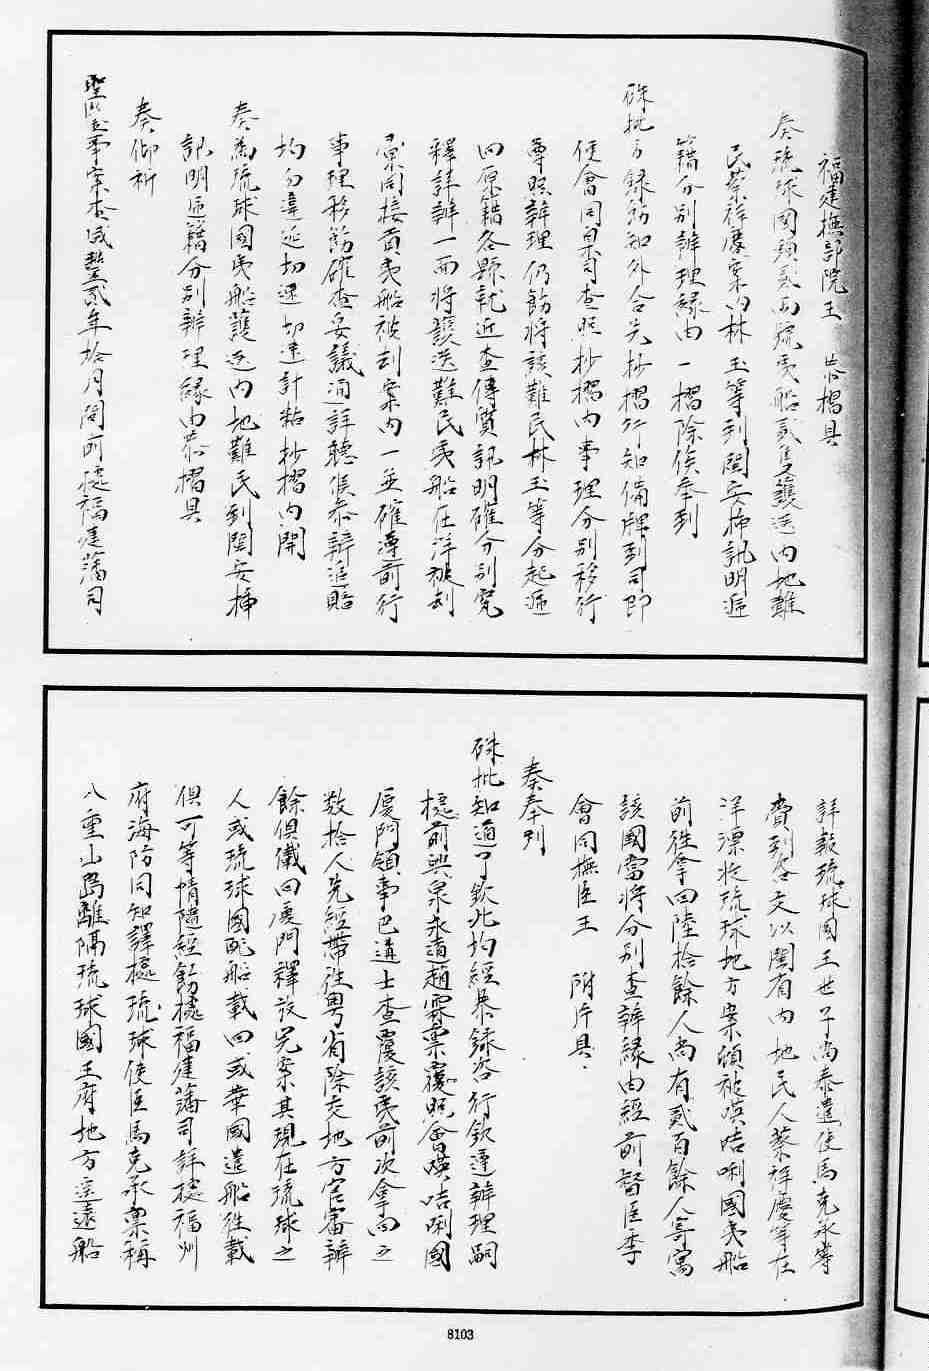 福建撫部院王　恭摺具
奏琉球國頭貳兩號夷船貳隻護送內地難
民蔡祥慶案內林玉等到閩安揷訊明遞
籍分別辦理緣由一摺除俟奉到
硃批另錄飭知外合先抄摺行知備牌到司即
便會同臬司查照抄摺內事理分別移行
尊照辦理仍飭將該難民林玉等分起遞
回原籍各縣就近查傳質訊明確分別究
釋詳辦一面將護送難民夷船在洋被刦
稟同接貢夷船被刦案內一並確遵前行
事理移飭確查妥議浦詳聽候恭辦追賠
均勿違延切速切速計粘抄摺內開
奏為琉球國夷船護送內地難民到閩安揷
訊明遞籍分別辦理緣由恭摺具
奏仰祈
聖鑒事案查咸豐貳年拾月間前據福建藩司
詳報琉球國王世子尚泰遣使馬克承等
齎到咨文以閩省內地民人蔡祥慶等在
洋漂收琉球地方案傾被𠸄咭唎國夷船
前往拿回陸拾餘人尚有貳百餘人寄寓
該國當將分別查辦緣由經前督臣季
會同撫臣王　附片具
奏奉到
硃批知道了欽此均經恭錄咨行欽遵辦理嗣
據前興泉永道趙霖稟覆照會𠸄咭唎國
廈門領事巴遘士查覆該夷前次拿回之
數拾人先經帶往粵省除交地方官審辦
餘俱儎回廈門釋放完案其現在琉球之
人或琉球國配船載回或華國遣船往載
俱可等情隨經飭據福建藩司詳據福州
府海防同知譯據琉球使臣馬克承稟稱
八重山島離隔琉球國王府地方遙遠船
8103